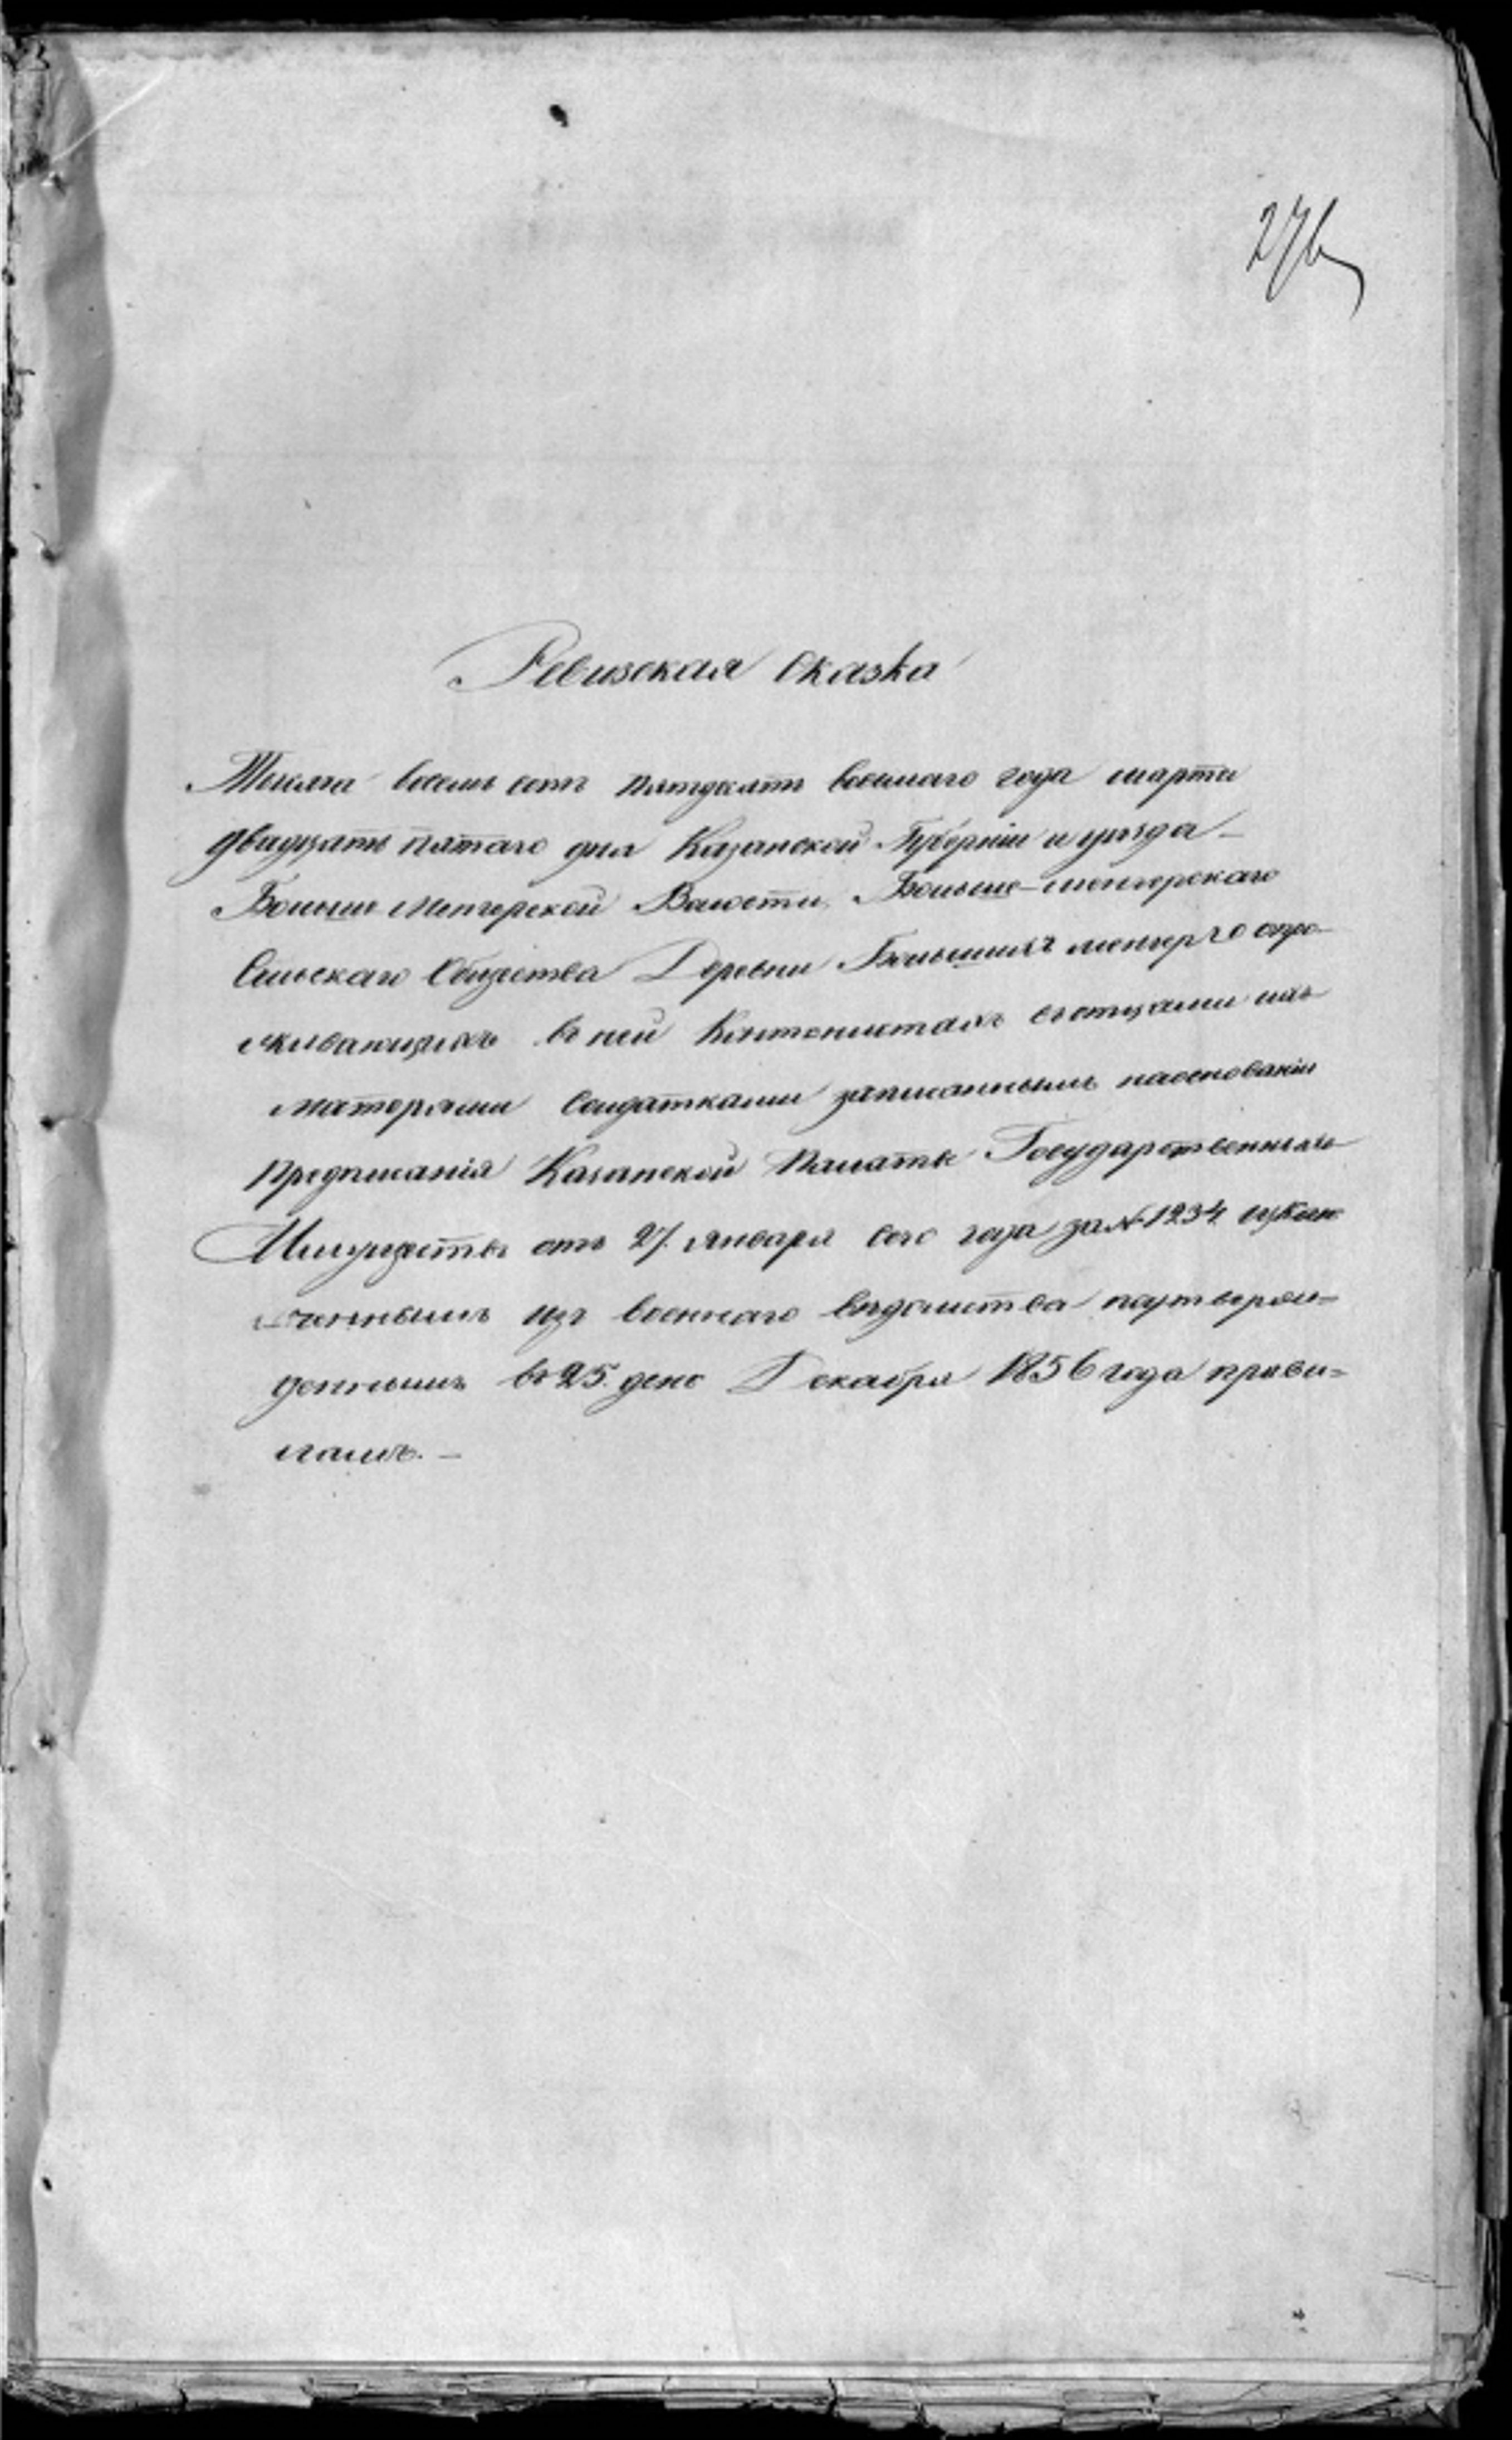 276
Ревизская Сказка
Тысяча восемь сотъ пятдесятъ восьмаго года марта
двадцать пятаго дня Казанской Губерніи и уѣзда –
Больше Менгерской Волости, Больше-менгерскаго
Сельскаго Общества Деревни Большихъ менгеръ о про-
живающихъ въ ней Кантонистахъ съ отцами ихъ
матерями солдатками записаннымъ на основаніи
Предписанія Казанской Палаты Государственныхъ
Имуществъ отъ 27. Января сего года за № 1234 исклю
ченнымъ изъ военнаго вѣдомства подтверж=
деннымъ въ 25. день Декабря 1856 года прави=
ламъ. –